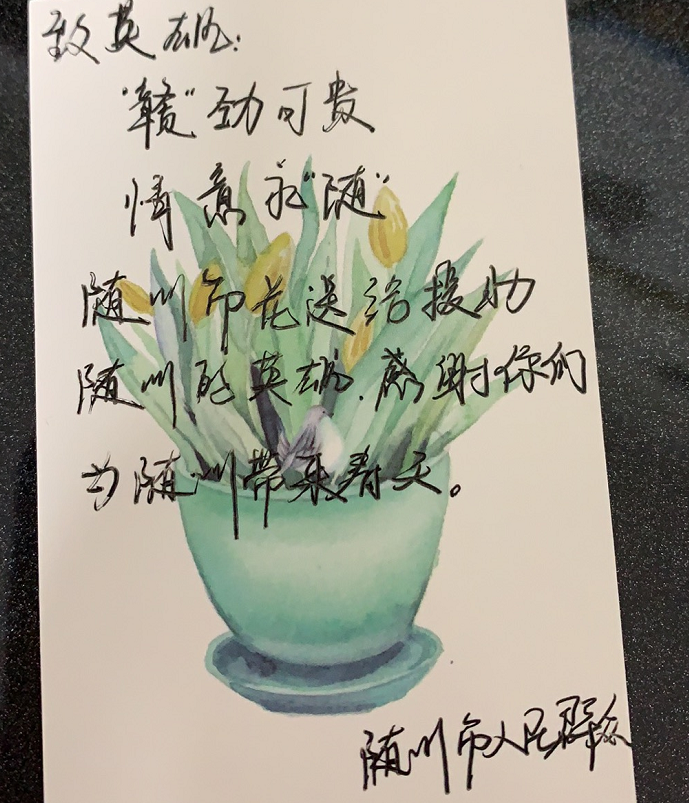 致英雄：
“赣”劲可贵
情意永“随”
随州市花送给援助
随州的英雄，感谢你们
为随州带来春天。
随州市人民群众